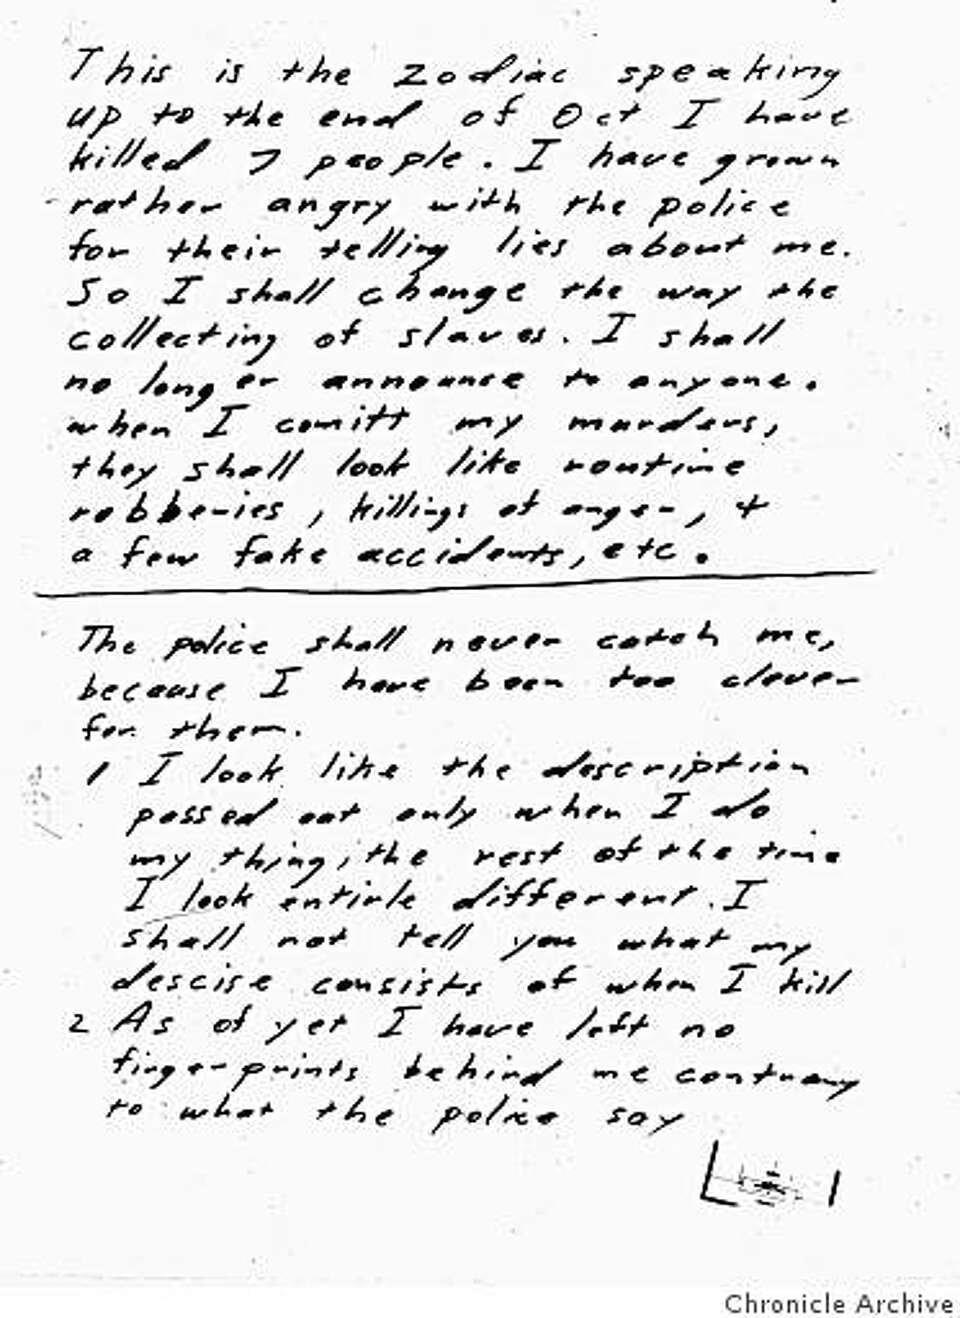 This is the Zodiac speaking
up to the end of Oct I have
killed 7 people. I have grown
rather angry with the police
for their telling lies about me.
So I shall change the way the
collecting of slaves. I shall
no longer announce to anyone.
when I comitt my murders,
they shall look like routine
robberies, killings of anger, +
a few fake accidents, etc.
The police shall never catch me,
because I have been too clever
for them.
1 I look like the description
passed out only when I do
my thing, the rest of the time
I look entirle different. I
shall not tell you what my
descise consists of when I kill
2 As of yet I have left no
fingerprints behind me contrary
to what the police say
Chronicle Archive